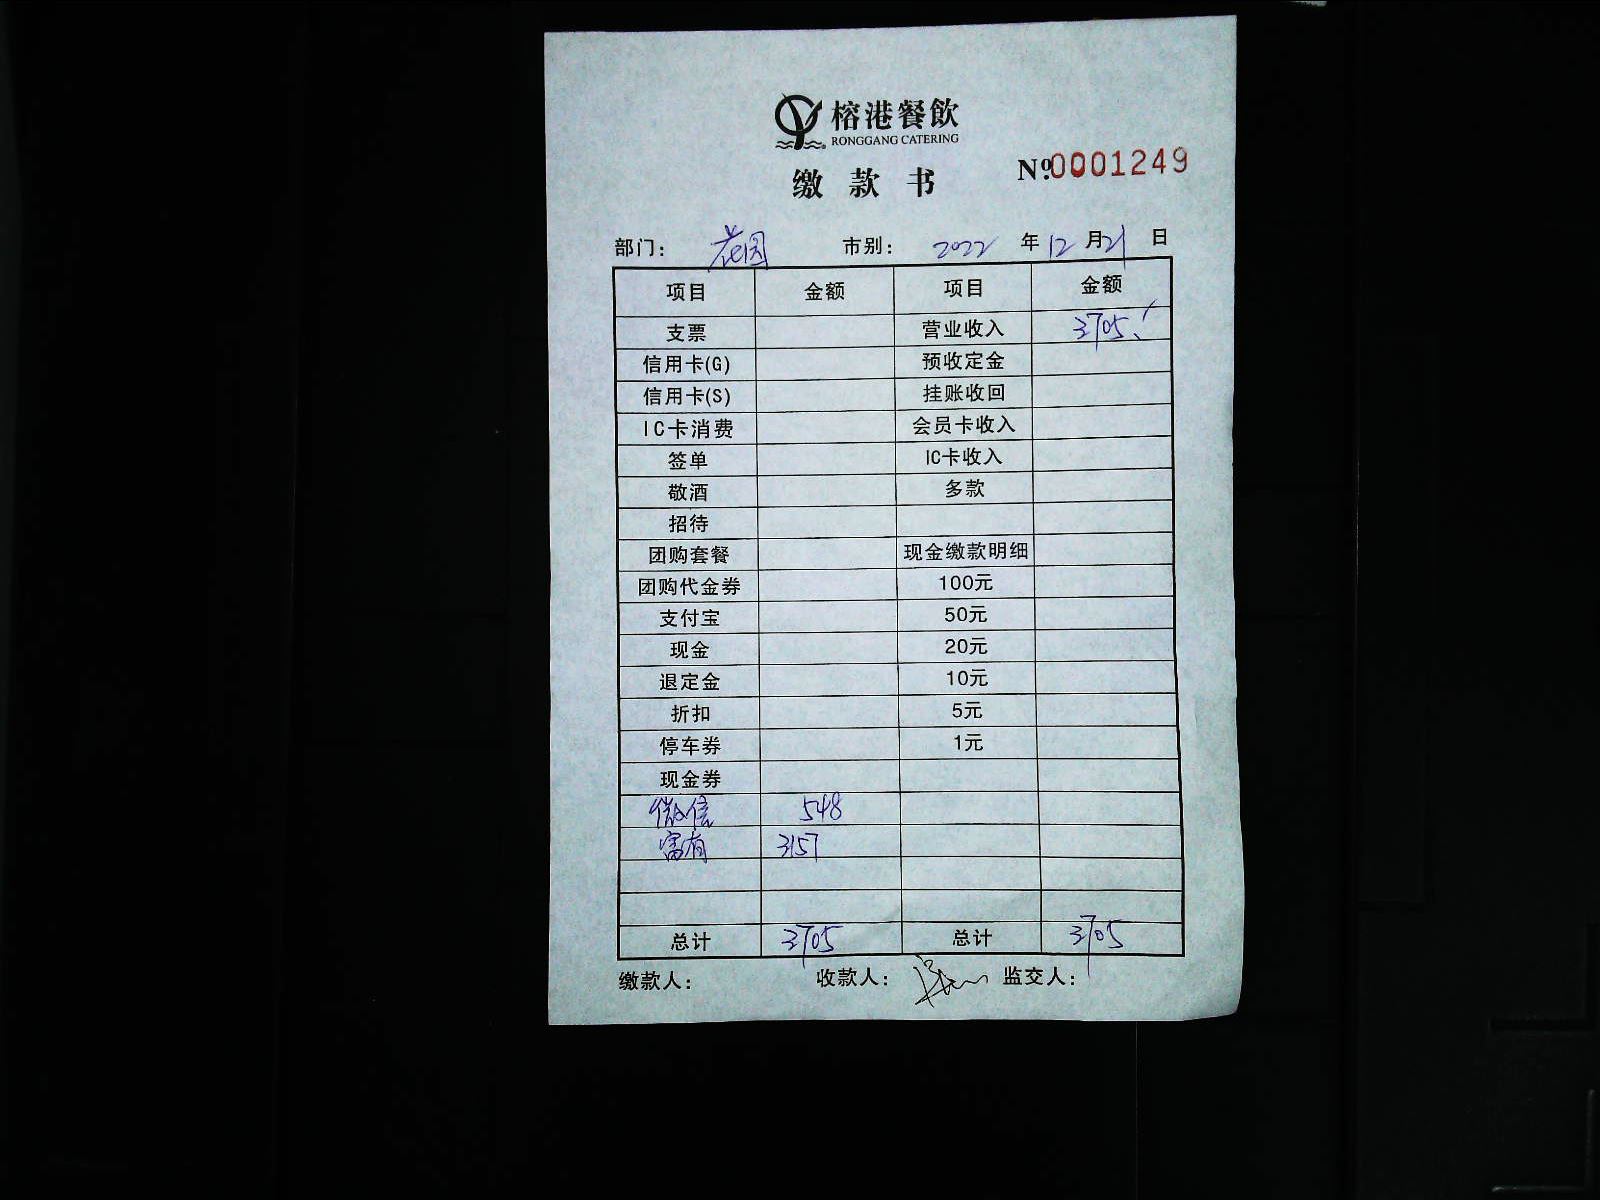 榕港餐飲
RONGGANG CATERING
缴款书 №0001249
部门: 花园 市别: 2022年12月21日
项目 金额 项目 金额
支票 营业收入 3705
信用卡(G) 预收定金
信用卡(S) 挂账收回
IC卡消费 会员卡收入
签单 IC卡收入
敬酒 多款
招待
团购套餐 现金缴款明细
团购代金券 100元
支付宝 50元
现金 20元
退定金 10元
折扣 5元
停车券 1元
现金券
微信 548
富有 3157
总计 3705 总计 3705
缴款人: 收款人: 监交人: